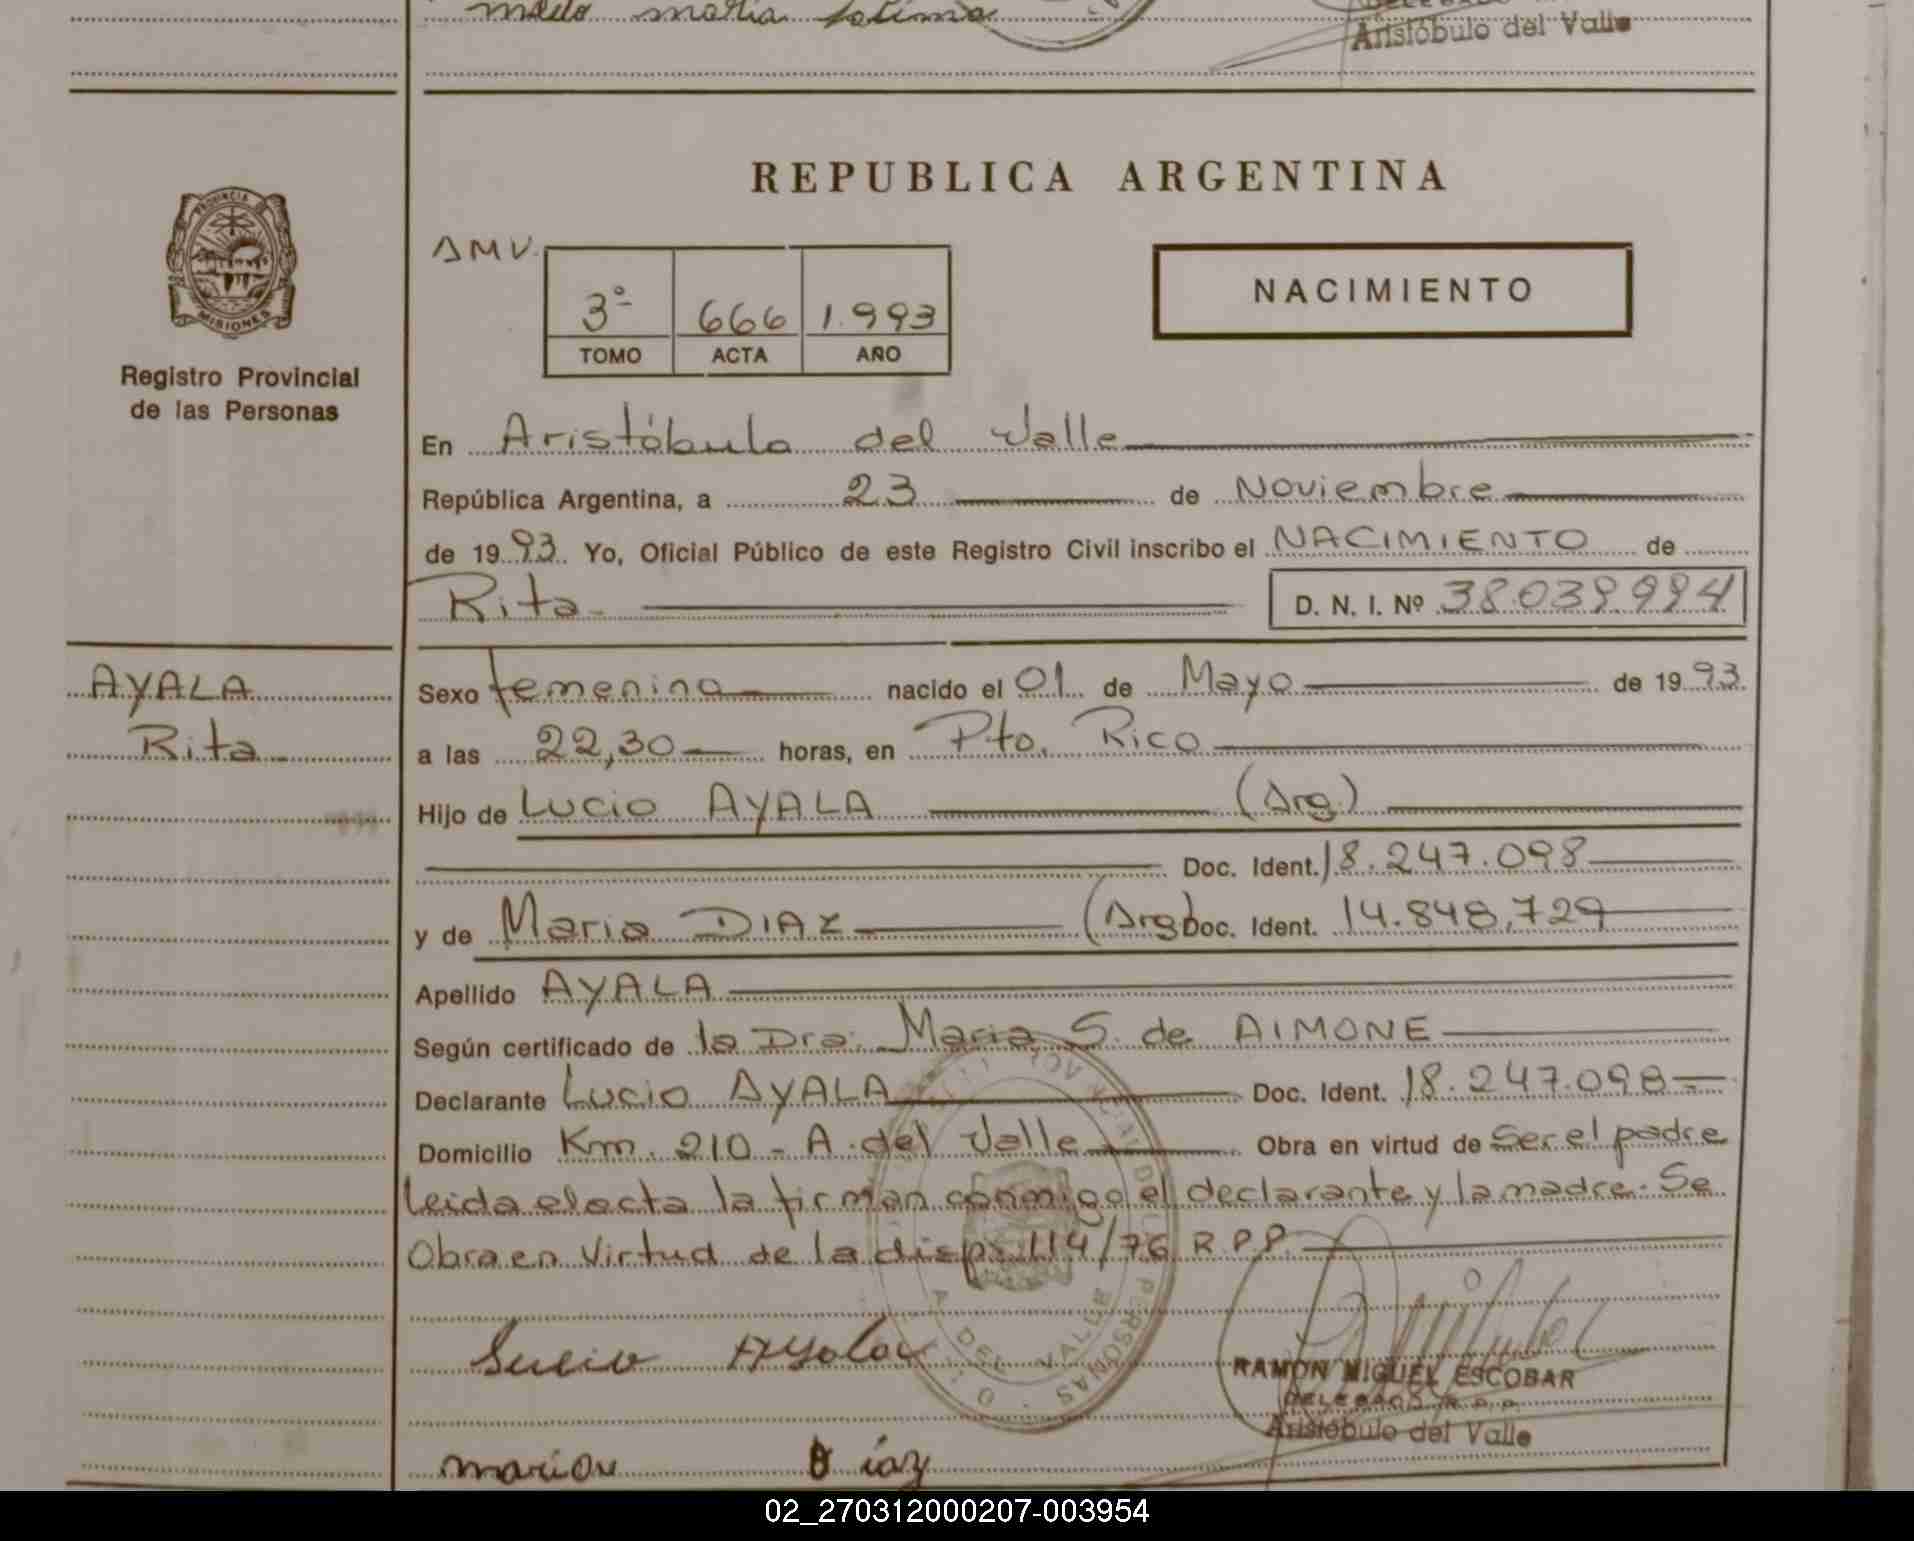 maria fatima
Aristóbulo del Valle
REPUBLICA ARGENTINA
PROVINCIA DE
MISIONES
Registro Provincial
de las Personas
AMV.
3º 666 1.993
TOMO ACTA AÑO
NACIMIENTO
En Aristóbulo del Valle
República Argentina, a 23 de Noviembre
de 1993. Yo, Oficial Público de este Registro Civil inscribo el NACIMIENTO de
Rita- D. N. I. Nº 38.039.994
AYALA
Rita-
Sexo femenino nacido el 01 de Mayo de 1993
a las 22,30 horas, en Pto. Rico
Hijo de Lucio AYALA (Arg.)
Doc. Ident. 18.247.098
y de Maria DIAZ (Arg) Doc. Ident. 14.848,729
Apellido AYALA
Según certificado de la Dra. Maria S. de AIMONE
Declarante Lucio AYALA Doc. Ident. 18.247.098
Domicilio Km. 210 - A. del Valle Obra en virtud de Ser el padre
Leida el acta la firman conmigo el declarante y la madre. Se
Obra en Virtud de la disp. 114/76 R.P.P.
A. DEL VALLE
PERSONAS
Lucio Ayala
RAMON MIGUEL ESCOBAR
DELEGADO R.P.P.
Aristóbulo del Valle
maria Díaz
02_270312000207-003954